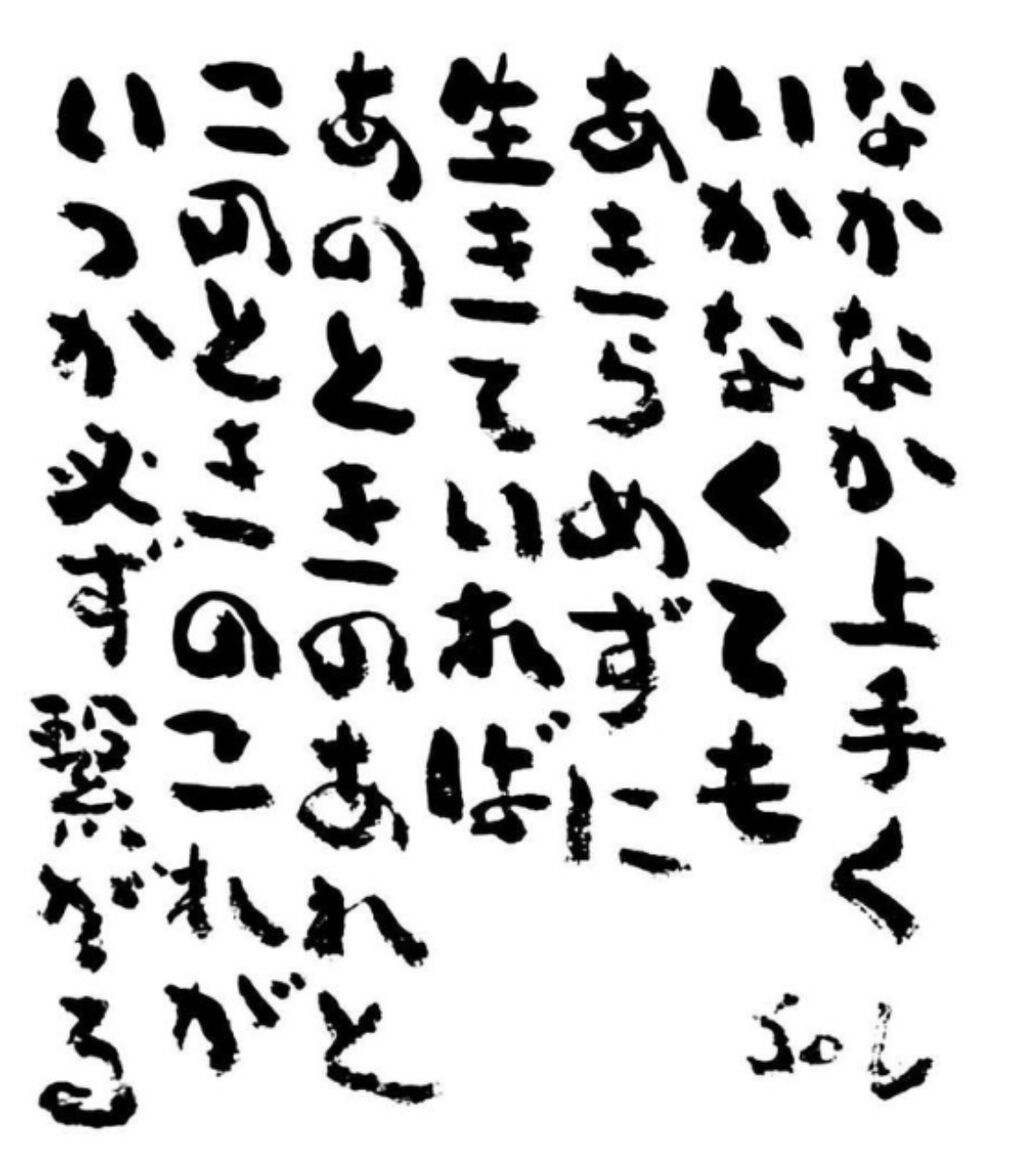 なかなか上手く
いかなくても
あきらめずに
生きていれば
あのときのあれと
このときのこれが
いつか必ず繋がる